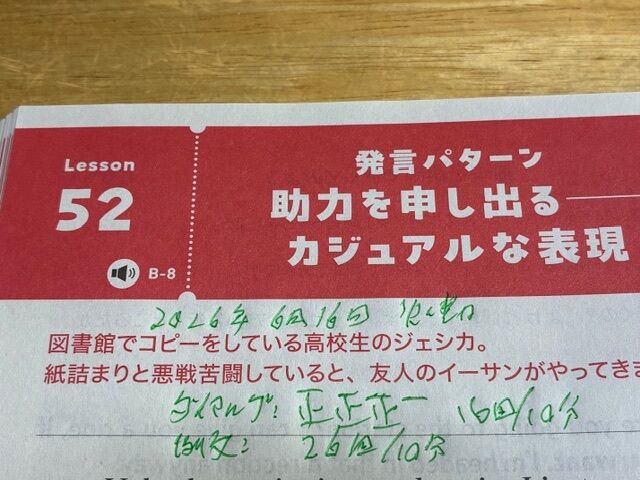 Lesson
52
B-8
発言パターン
助力を申し出る
カジュアルな表現
2026年 6月16日 火曜日
図書館でコピーをしている高校生のジェシカ。
紙詰まりと悪戦苦闘していると、友人のイーサンがやってきま
ダイアログ: 正正正一 16回/10分
26回/10分